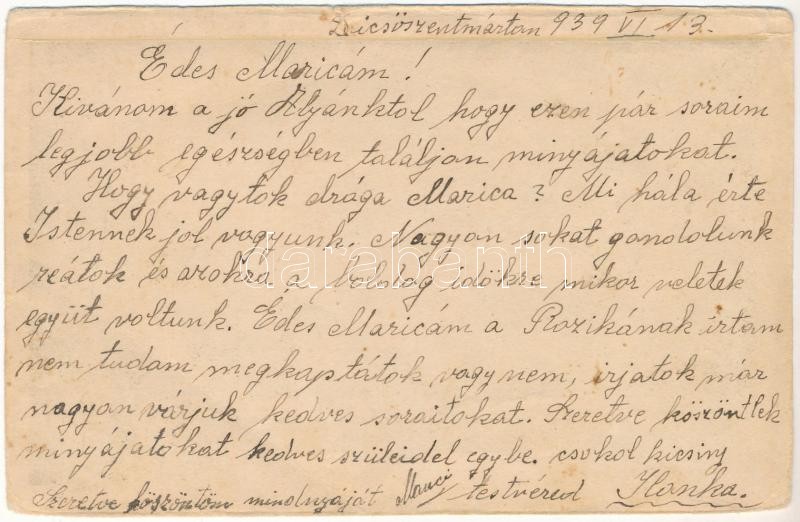 Dicsöszentmárton 939 VI 13.
Édes Maricám!
Kivánom a jó Atyánktol hogy ezen pár soraim
legjobb egészségben találjon minyájatokat.
Hogy vagytok drága Marica? Mi hála érte
Istennek jol vagyunk. Nagyon sokat gondolunk
reátok és azokra a boldog idökre mikor veletek
együtt voltunk. Édes Maricám a Rozikának irtam
nem tudam megkaptátok vagy nem, irjatok már
nagyon várjuk kedves soraitokat. Szeretve köszöntlek
minyájatokat kedves szüleidel egybe. csokol kicsiny
Szeretve köszöntöm minduzáját Manci testvéred Ilonka.
Darabanth.com